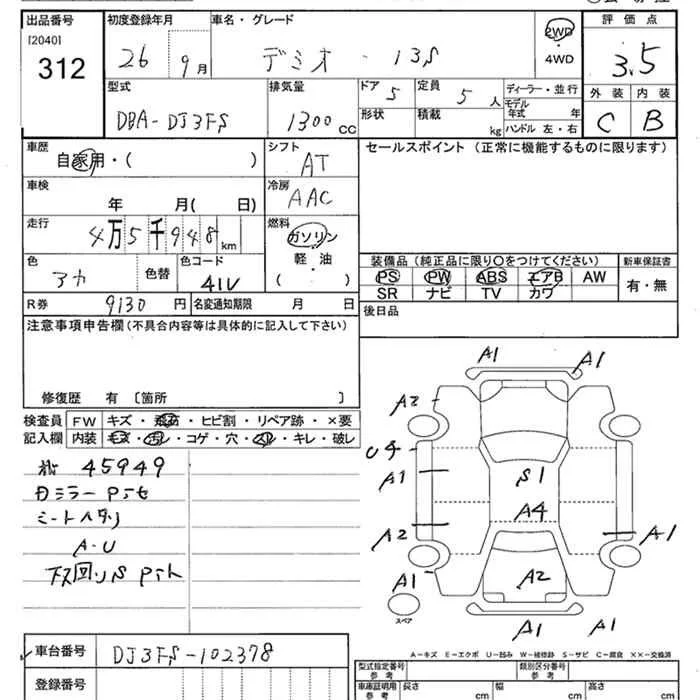 出品番号 初度登録年月 車名・グレード 2WD 評価点
[2040] 312 26 9月 デミオ・13S ・ 4WD 3.5
型式 排気量 ドア 5 定員 5人 ディーラー・並行 外装 内装
DBA-DJ3FS 1300cc 形状 積載 kg モデル年式 年 ハンドル 左・右 C B
車歴 シフト セールスポイント (正常に機能するものに限ります)
自家用・( ) AT
車検 冷房
年 月( 日) AAC
走行 燃料
4万5千948km ガソリン
色 色替 色コード 軽・油 装備品 (純正品に限り○をつけてください) 新車保証書
アカ 41V ( ) PS PW ABS エアB AW 有・無
SR ナビ TV カワ
R券 9130円 名変通知期限 月 日 後日品
注意事項申告欄 (不具合内容等は具体的に記入して下さい)
修復歴 有 〔箇所 〕
検査員 FW キズ・飛石・ヒビ割・リペア跡・×要
記入欄 内装 キズ・汚れ・コゲ・穴・スレ・キレ・破レ
45949
A-U
A1 A1
A2
Uチ
A1 S1
A4
A2 A1
A1 A2
スペア
A-キズ E-エクボ U-凹み W-補修跡 S-サビ C-腐食 ××-交換済
車台番号 DJ3FS-102378
登録番号
型式指定番号 参考 類別区分番号 参考
車庫証明用 参考 長さ cm 幅 cm 高さ cm